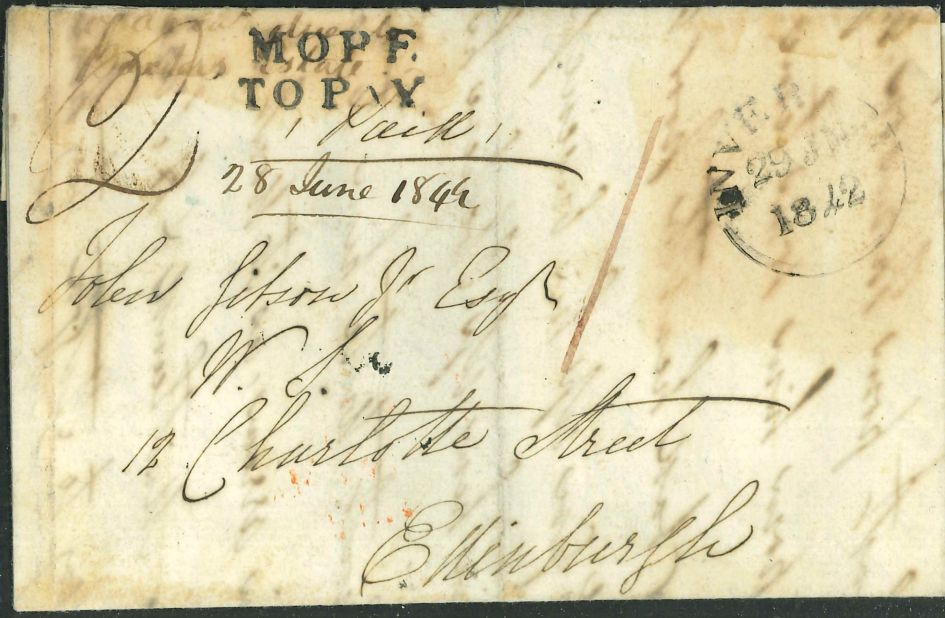 MORE
TO PAY
2
Paid
28 June 1842
INVER
29 JU
1842
John Gibson Jr Esqr
W. S.
12 Charlotte Street
Edinburgh